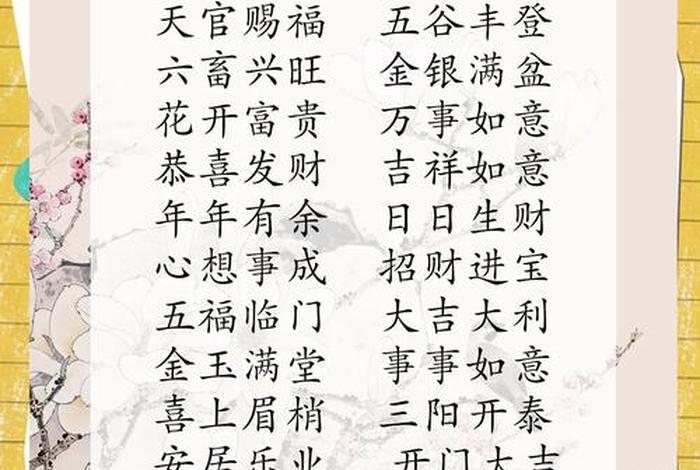 天官赐福 五谷丰登
六畜兴旺 金银满盆
花开富贵 万事如意
恭喜发财 吉祥如意
年年有余 日日生财
心想事成 招财进宝
五福临门 大吉大利
金玉满堂 事事如意
喜上眉梢 三阳开泰
安居乐业 开门大吉